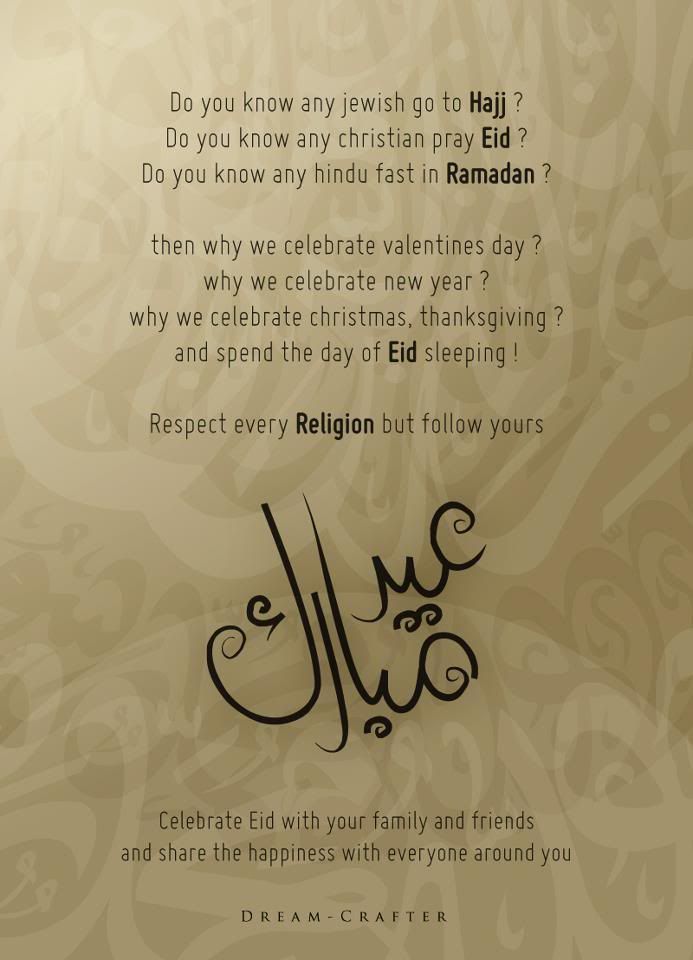 Do you know any jewish go to Hajj ?
Do you know any christian pray Eid ?
Do you know any hindu fast in Ramadan ?
then why we celebrate valentines day ?
why we celebrate new year ?
why we celebrate christmas, thanksgiving ?
and spend the day of Eid sleeping !
Respect every Religion but follow yours
عيد
مبارك
Celebrate Eid with your family and friends
and share the happiness with everyone around you
DREAM-CRAFTER